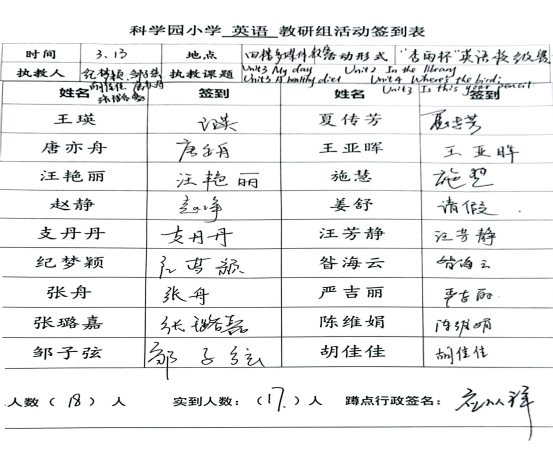 科学园小学 英语 教研组活动签到表
时间 3.13 地点 四楼多媒体教室 活动形式 "杏雨杯"英语
执教人 纪梦颖 邹子弦 执教课题 Unit3 My day Unit2 In the library
胡佳佳 Unit3 A healthy diet Unit4 Where's the bird?
Unit3 Is this your pencil
姓名 签到 姓名 签到
王瑛 王瑛 夏传芳 夏传芳
唐亦舟 唐亦舟 王亚晖 王亚晖
汪艳丽 汪艳丽 施慧 施慧
赵静 赵静 姜舒 请假
支丹丹 支丹丹 汪芳静 汪芳静
纪梦颖 纪梦颖 昝海云 昝海云
张舟 张舟 严吉丽 严吉丽
张璐嘉 张璐嘉 陈维娟 陈维娟
邹子弦 邹子弦 胡佳佳 胡佳佳
人数（18）人 实到人数：（17.）人 蹲点行政签名：